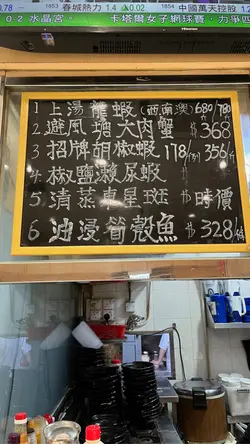 0.78 1853 春城熱力 1.4 ▲0.02 1854 中國萬天控股
0.2 水晶宮。 卡塔爾女子網球賽，力爭四
1 上湯龍蝦(西南澳) 680/780
2 避風塘大肉蟹 $368
3 招牌胡椒蝦 178/ 356/
4 椒鹽瀨尿蝦
5 清蒸東星斑 $ 時價
6 油浸筍殼魚 $328/